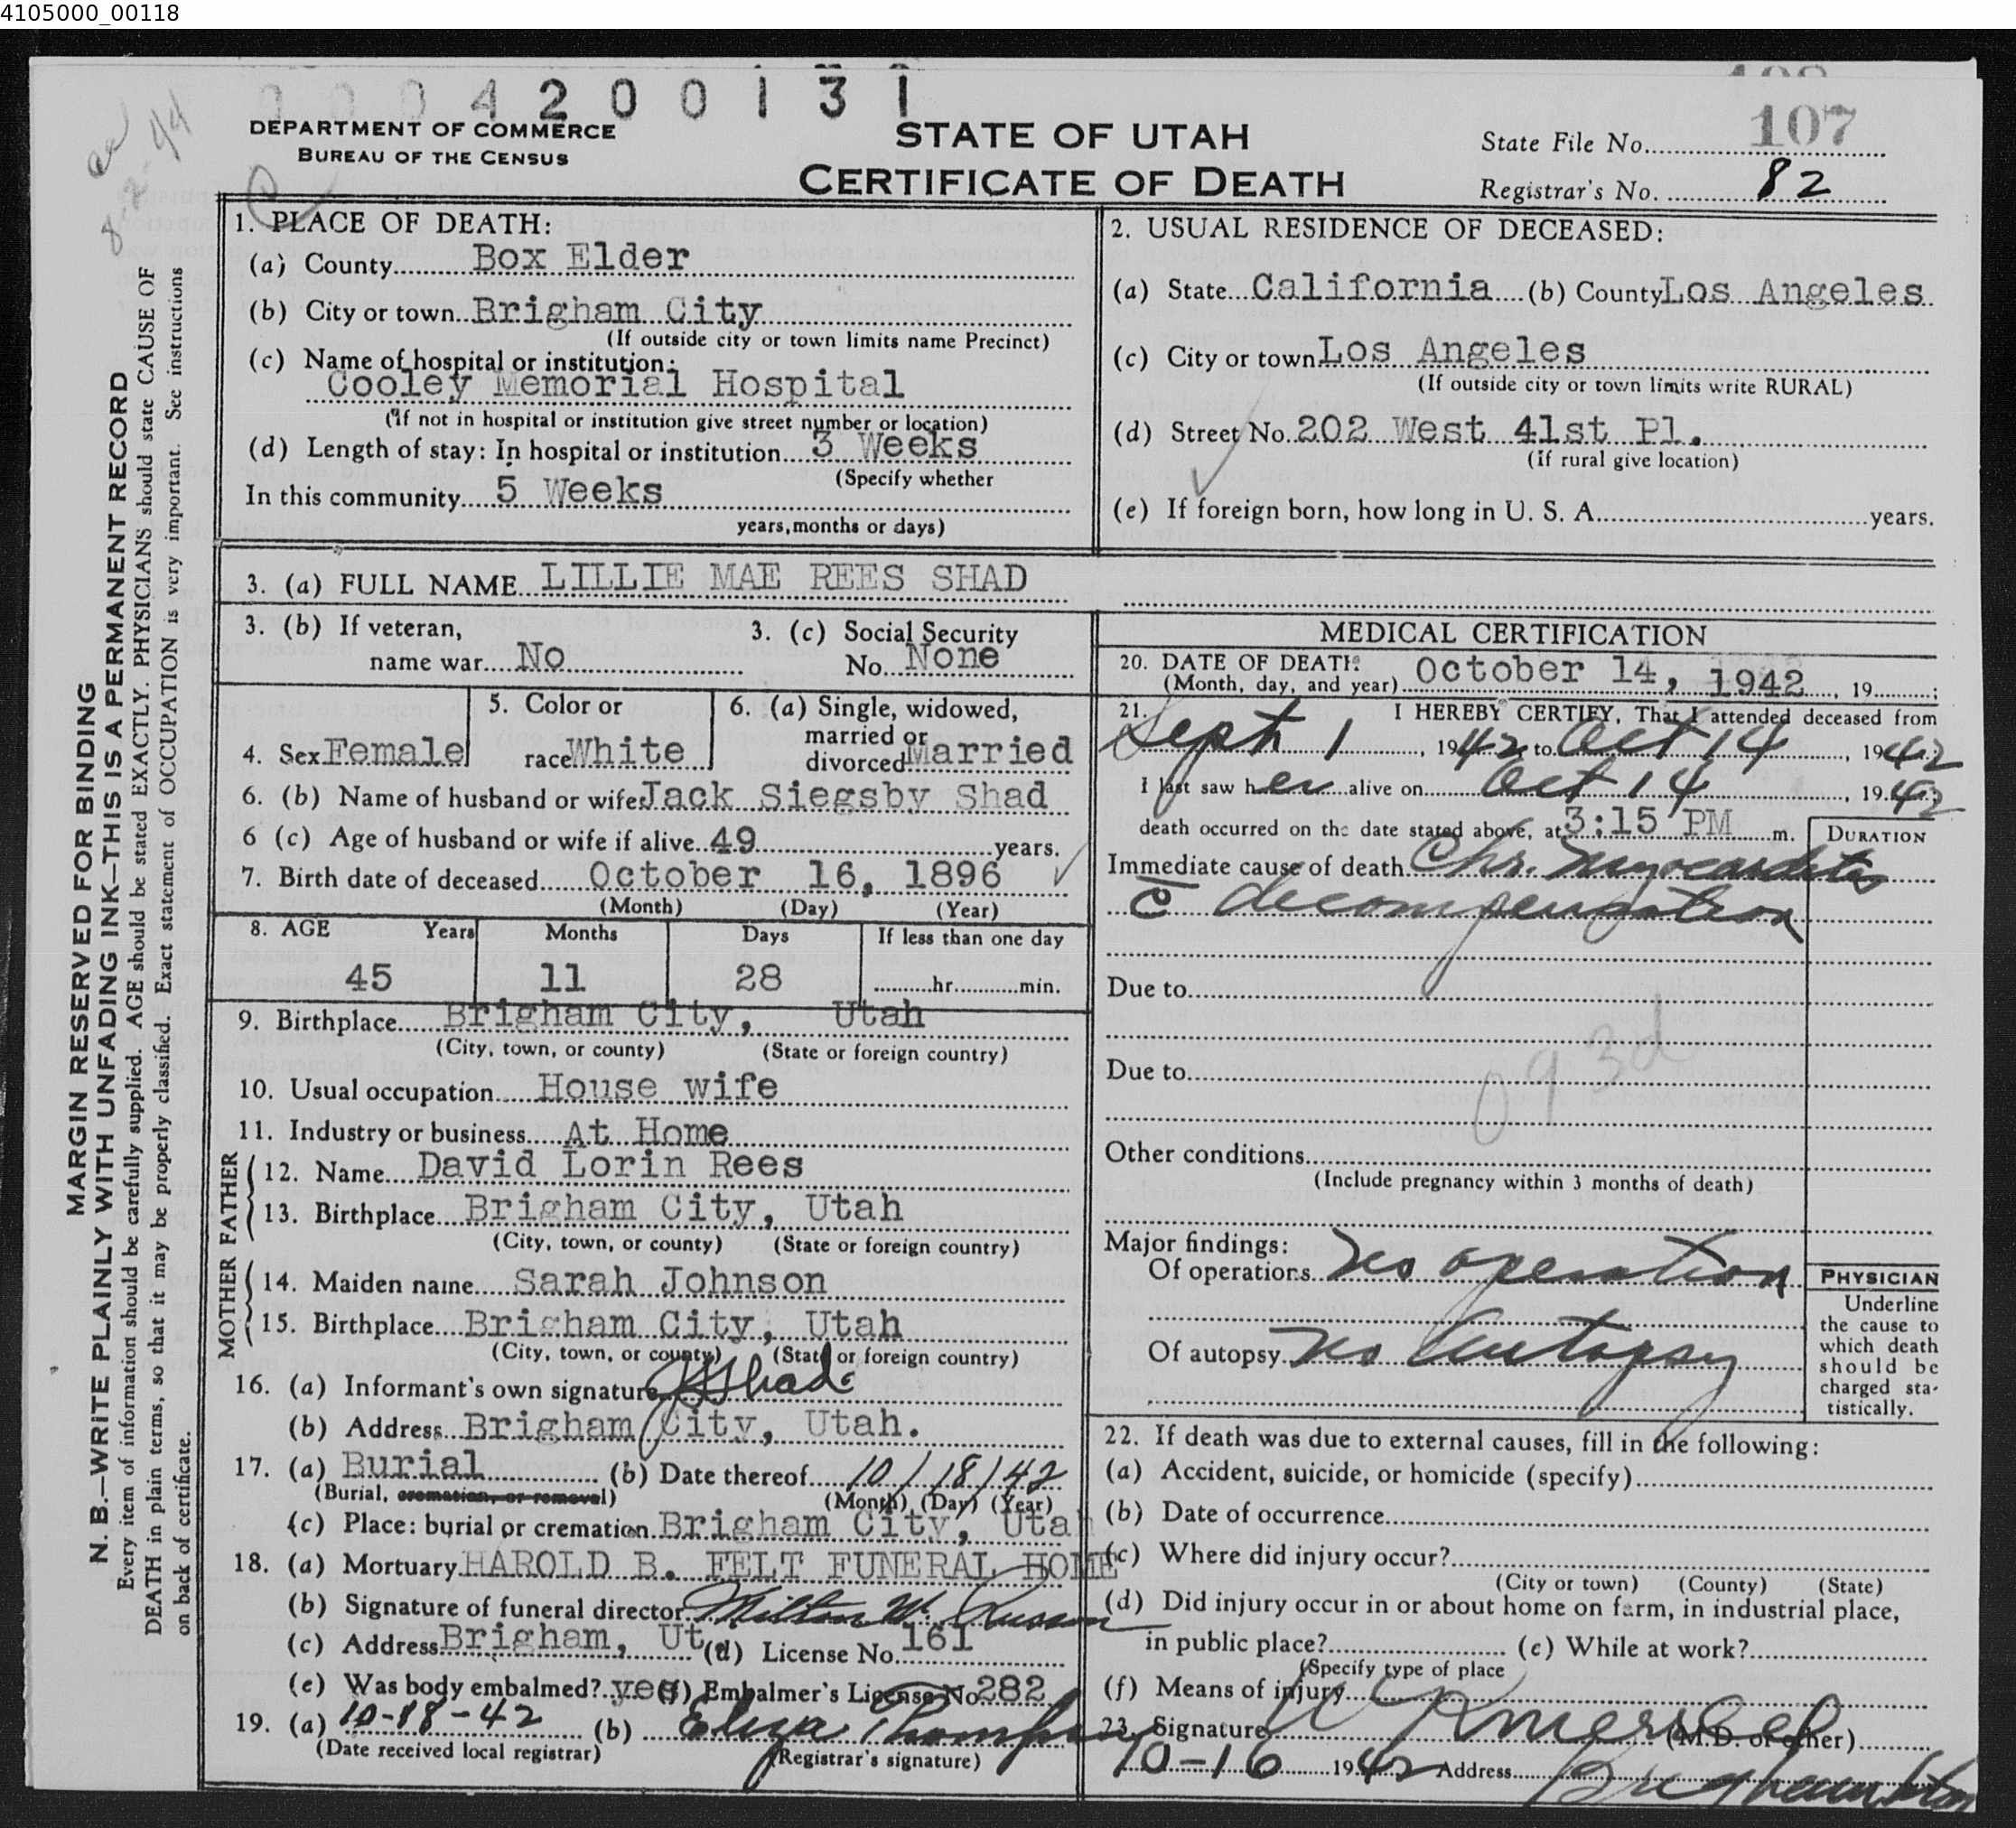 4105000_00118
0 0 0 4 2 0 0 1 3 1
DEPARTMENT OF COMMERCE
BUREAU OF THE CENSUS
STATE OF UTAH
CERTIFICATE OF DEATH
State File No. 107
Registrar's No. 82
8-2-44
MARGIN RESERVED FOR BINDING
N. B.—WRITE PLAINLY WITH UNFADING INK—THIS IS A PERMANENT RECORD
Every item of information should be carefully supplied. AGE should be stated EXACTLY. PHYSICIANS should state CAUSE OF
DEATH in plain terms, so that it may be properly classified. Exact statement of OCCUPATION is very important. See instructions
on back of certificate.
1. PLACE OF DEATH:
(a) County Box Elder
(b) City or town Brigham City
(If outside city or town limits name Precinct)
(c) Name of hospital or institution:
Cooley Memorial Hospital
(If not in hospital or institution give street number or location)
(d) Length of stay: In hospital or institution 3 Weeks
(Specify whether
In this community 5 Weeks
years, months or days)
2. USUAL RESIDENCE OF DECEASED:
(a) State California (b) County Los Angeles
(c) City or town Los Angeles
(If outside city or town limits write RURAL)
(d) Street No. 202 West 41st Pl.
(If rural give location)
(e) If foreign born, how long in U. S. A. years.
3. (a) FULL NAME LILLIE MAE REES SHAD
3. (b) If veteran,
name war No
3. (c) Social Security
No. None
4. Sex Female
5. Color or
race White
6. (a) Single, widowed,
married or
divorced Married
6. (b) Name of husband or wife Jack Siegsby Shad
6 (c) Age of husband or wife if alive 49 years.
7. Birth date of deceased October 16, 1896
(Month) (Day) (Year)
8. AGE Years Months Days If less than one day
45 11 28 hr. min.
9. Birthplace Brigham City, Utah
(City, town, or county) (State or foreign country)
10. Usual occupation House wife
11. Industry or business At Home
FATHER
12. Name David Lorin Rees
13. Birthplace Brigham City, Utah
(City, town, or county) (State or foreign country)
MOTHER
14. Maiden name Sarah Johnson
15. Birthplace Brigham City, Utah
(City, town, or county) (State or foreign country)
16. (a) Informant's own signature J S Shad
(b) Address Brigham City, Utah.
17. (a) Burial (b) Date thereof 10/18/42
(Burial, cremation, or removal) (Month) (Day) (Year)
(c) Place: burial or cremation Brigham City, Uta
18. (a) Mortuary HAROLD B. FELT FUNERAL HOME
(b) Signature of funeral director Milton W.
(c) Address Brigham, Ut. (d) License No. 161
(e) Was body embalmed? yes (f) Embalmer's License No. 282
19. (a) 10-18-42 (b) Eliza
(Date received local registrar) (Registrar's signature)
MEDICAL CERTIFICATION
20. DATE OF DEATH: October 14, 1942, 19 ;
(Month, day, and year)
21. I HEREBY CERTIFY, That I attended deceased from
Sept 1, 1942 to Oct 14, 1942
I last saw her alive on Oct 14, 1942
death occurred on the date stated above, at 3:15 PM m.
DURATION
Immediate cause of death Chr. Myocarditis
c̄ decompensation
Due to
Due to
093d
Other conditions
(Include pregnancy within 3 months of death)
Major findings:
Of operations no operation
Of autopsy no Autopsy
PHYSICIAN
Underline
the cause to
which death
should be
charged sta-
tistically.
22. If death was due to external causes, fill in the following:
(a) Accident, suicide, or homicide (specify)
(b) Date of occurrence
(c) Where did injury occur?
(City or town) (County) (State)
(d) Did injury occur in or about home on farm, in industrial place,
in public place? (e) While at work?
(Specify type of place
(f) Means of injury
23. Signature (M.D. or other)
10-16 1942 Address